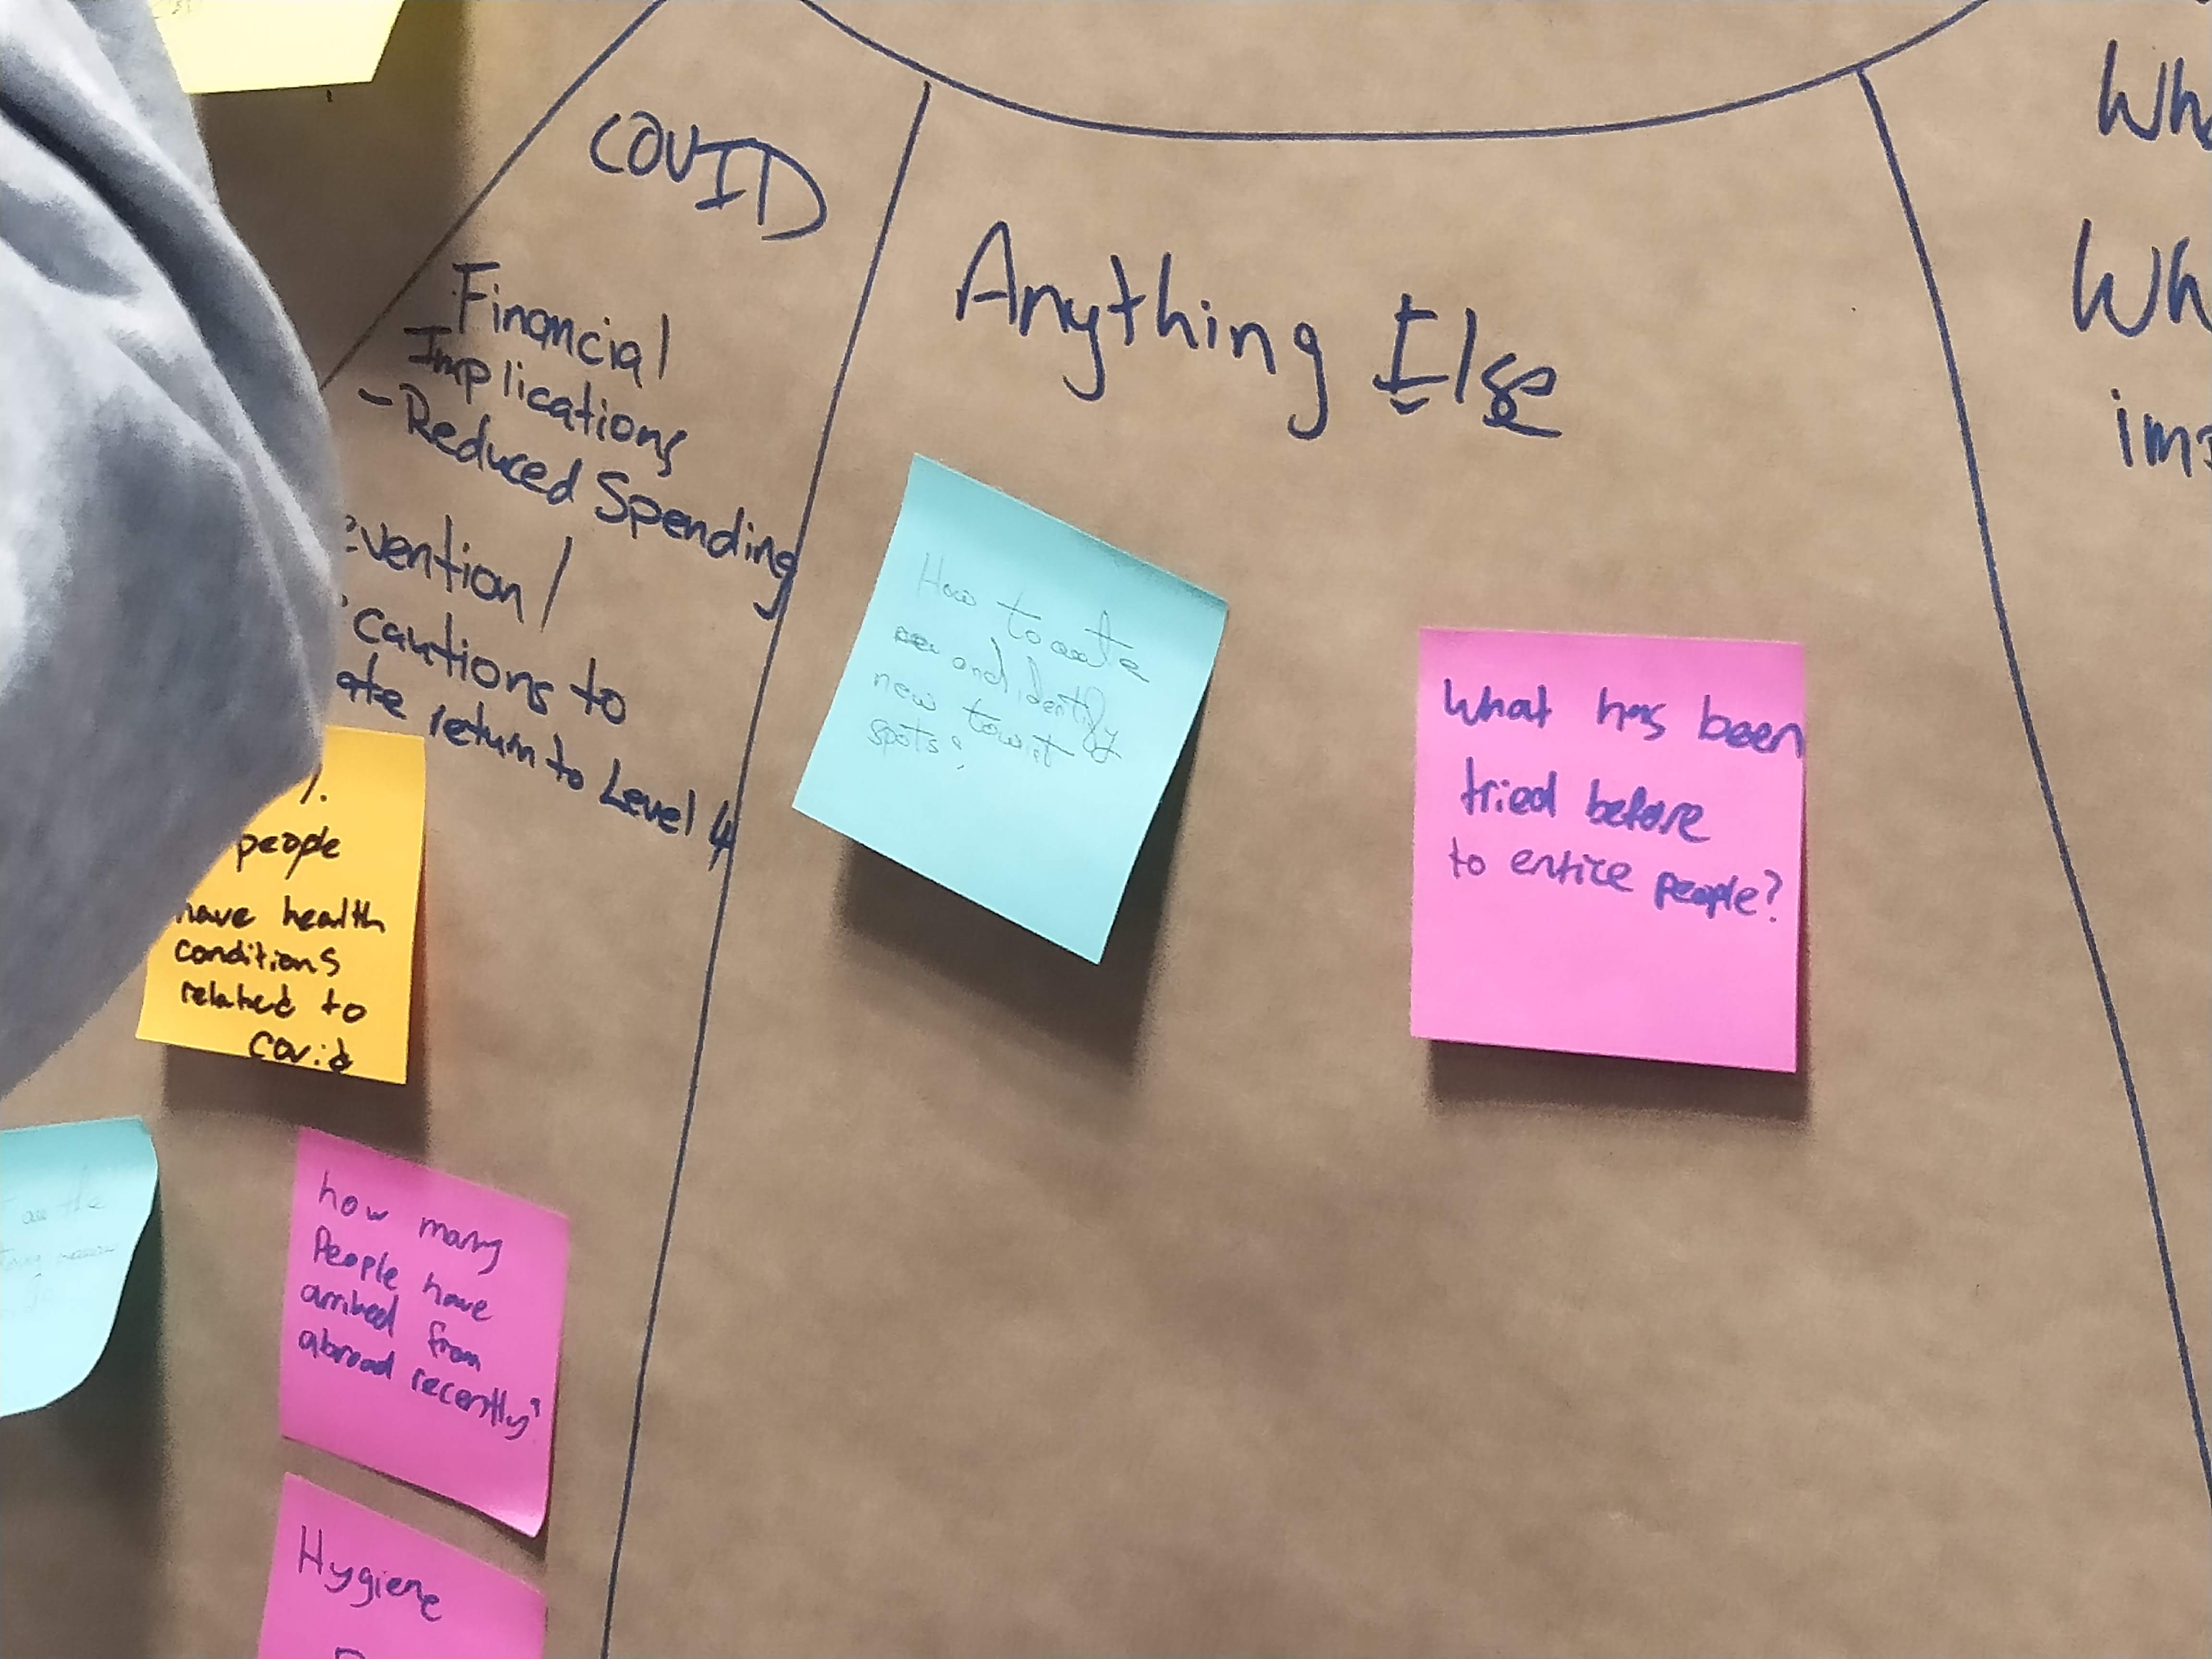 COVID
Financial
Implications
- Reduced Spending
evention /
cautions to
ate return to Level 4
people
have health
conditions
related to
Covid
how many
People have
arrived from
abroad recently?
Hygiene
Anything Else
How to create
and identify
new tourist
spots?
What has been
tried before
to entice people?
Wh
Wh